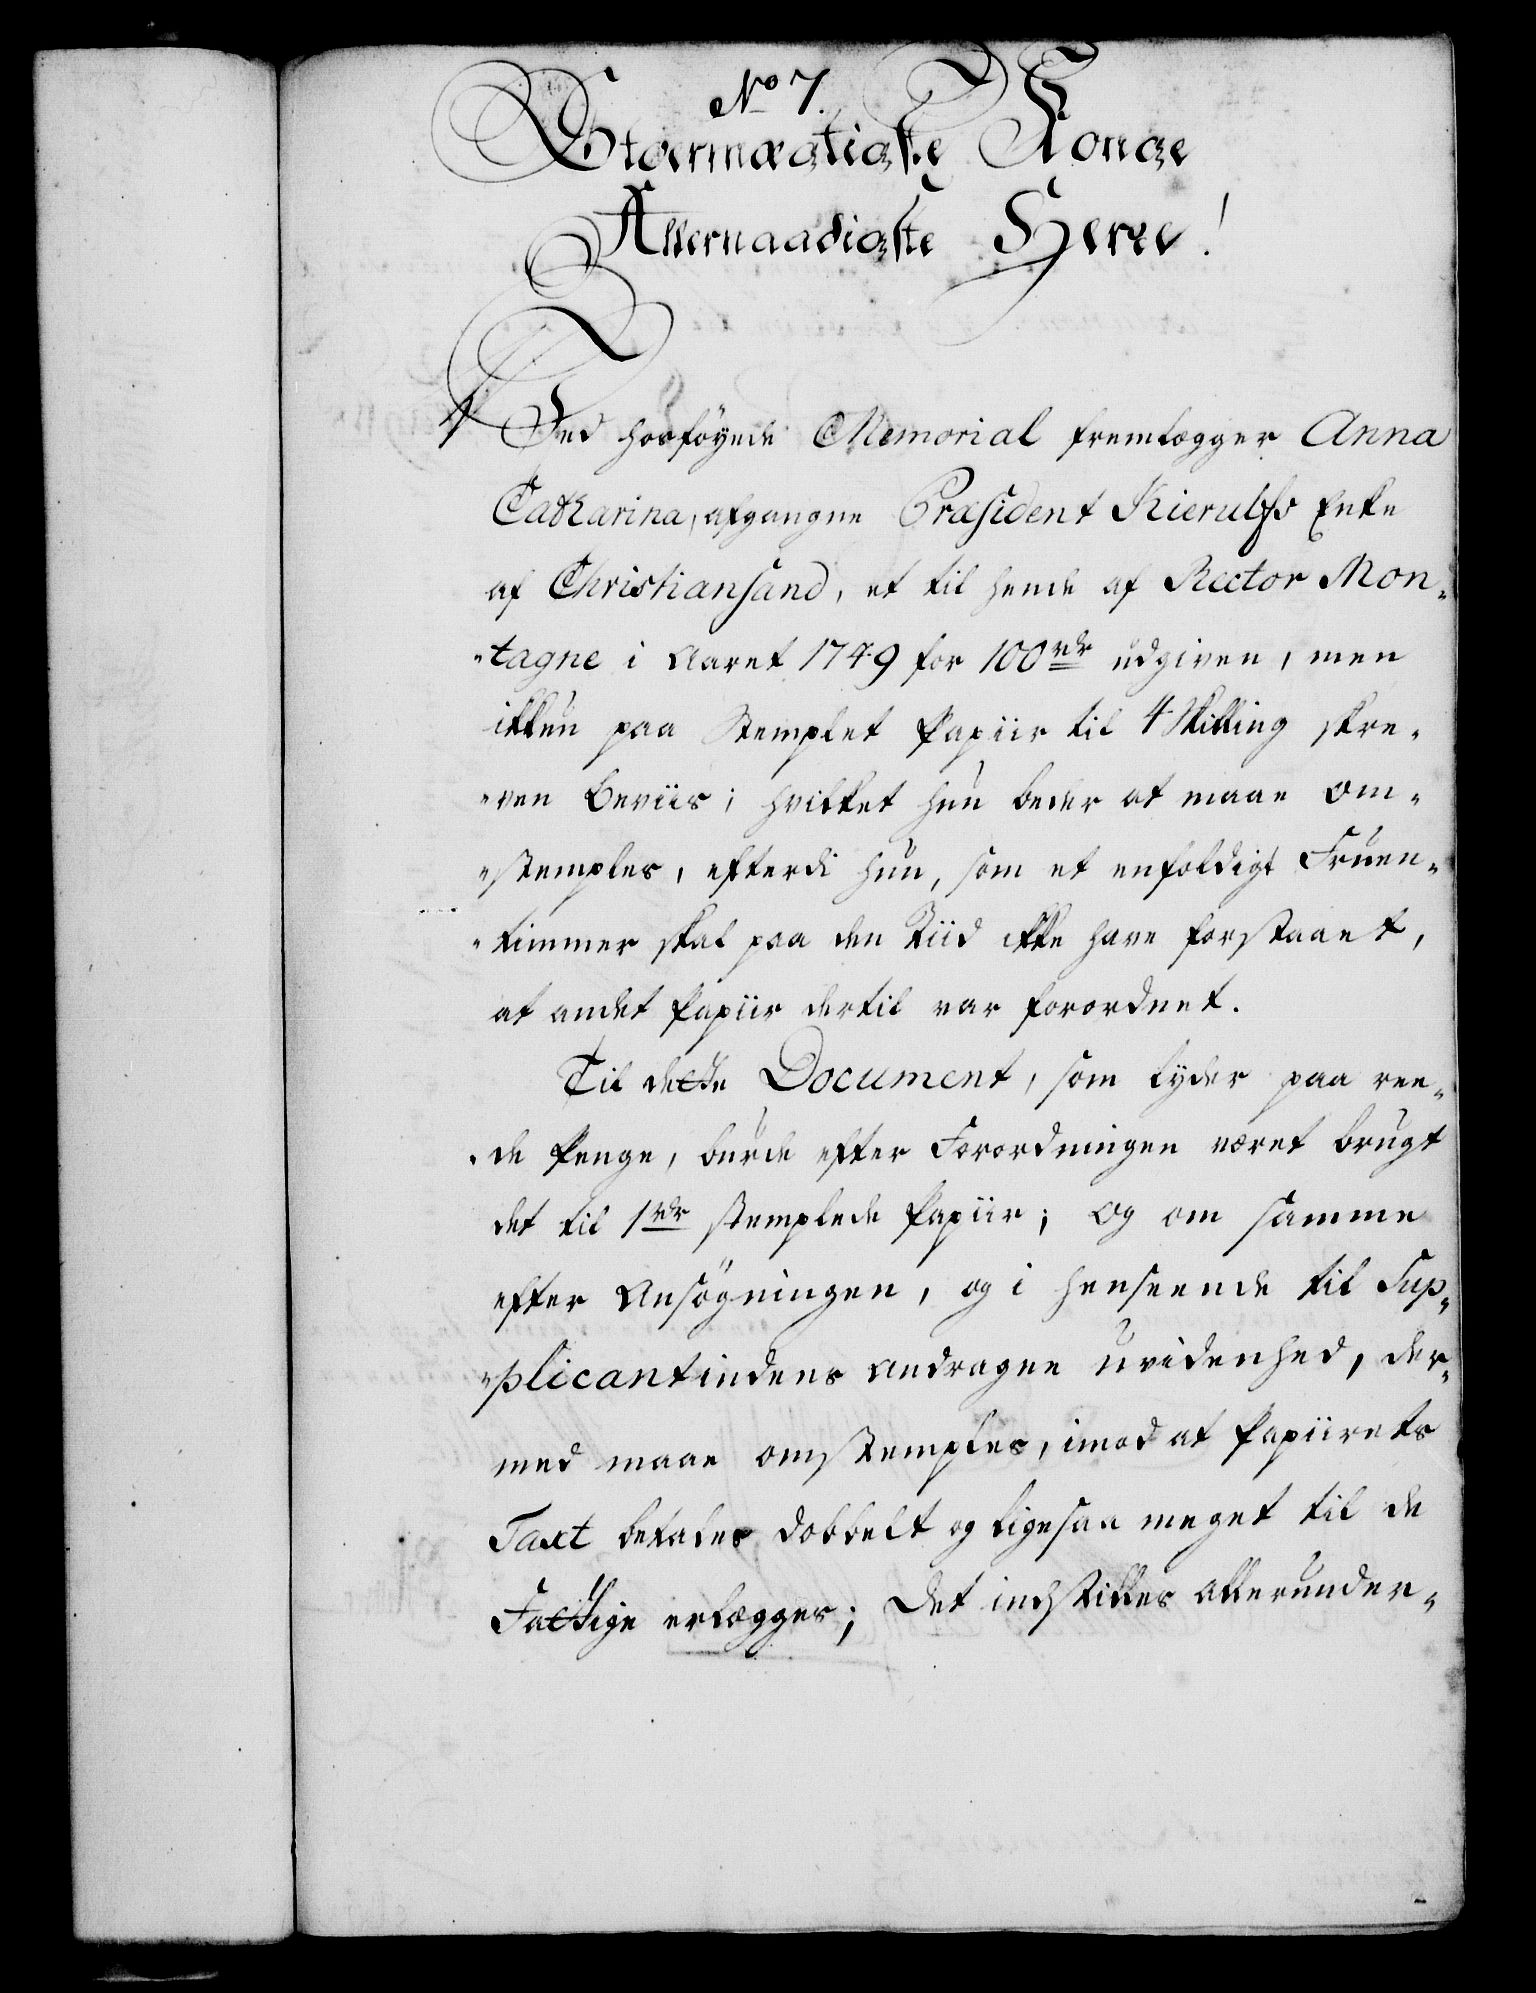 No 7.
Stoermægtigste Konge
Allernaadigste Herre!
Ved hosföyede Memorial fremlægger Anna
Catharina, afgangne Præsident Kierulfs Enke
af Christiansand, et til hende af Rector Mon-
-tagne i Aaret 1749 for 100 rdr udgiven, men
ikkun paa Stemplet Papiir til 4 Skilling skre-
-ven Beviis; hvilket hun beder at maae om-
-stemples, efterdi hun, som et enfoldigt Fruen-
-timmer skal paa den Tiid ikke have forstaaet,
at andet Papiir dertil var forordnet.
Til dette Document, som lyder paa ree-
-de Penge, burde efter Forordningen været brugt
det til 1 rdr stemplede Papiir; Og om samme
efter Ansögningen, og i henseende til Sup-
-plicantindens andragne uvidenhed, der-
med maae omstemples, imod at Papiirets
Taxt betales dobbelt og ligesaa meget til de
Fattige erlægges; Det indstilles allerunder-